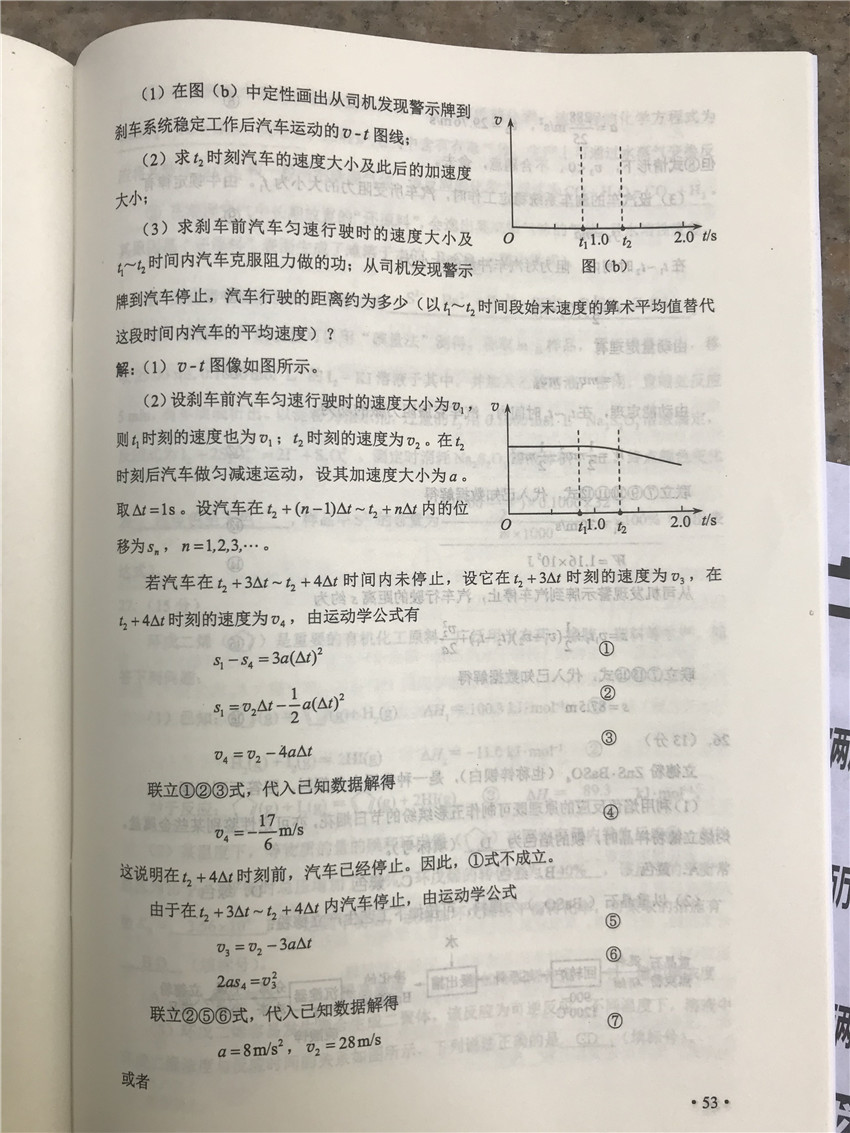 （1）在图（b）中定性画出从司机发现警示牌到
刹车系统稳定工作后汽车运动的v-t图线；
（2）求t₂时刻汽车的速度大小及此后的加速度
大小；
（3）求刹车前汽车匀速行驶时的速度大小及
t₁~t₂时间内汽车克服阻力做的功；从司机发现警示
v
O
t₁ 1.0 t₂ 2.0 t/s
图（b）
牌到汽车停止，汽车行驶的距离约为多少（以t₁~t₂时间段始末速度的算术平均值替代
这段时间内汽车的平均速度）？
解：（1）v-t图像如图所示。
（2）设刹车前汽车匀速行驶时的速度大小为v₁，
则t₁时刻的速度也为v₁；t₂时刻的速度为v₂。在t₂
时刻后汽车做匀减速运动，设其加速度大小为a。
取Δt=1s。设汽车在t₂+(n-1)Δt~t₂+nΔt内的位
移为sₙ，n=1,2,3,…。
v
O
t₁ 1.0 t₂ 2.0 t/s
若汽车在t₂+3Δt~t₂+4Δt时间内未停止，设它在t₂+3Δt时刻的速度为v₃，在
t₂+4Δt时刻的速度为v₄，由运动学公式有
s₁-s₄=3a(Δt)² ①
s₁=v₂Δt-1/2a(Δt)² ②
v₄=v₂-4aΔt ③
联立①②③式，代入已知数据解得
v₄=-17/6m/s ④
这说明在t₂+4Δt时刻前，汽车已经停止。因此，①式不成立。
由于在t₂+3Δt~t₂+4Δt内汽车停止，由运动学公式
v₃=v₂-3aΔt ⑤
2as₄=v₃² ⑥
联立②⑤⑥式，代入已知数据解得
a=8m/s²，v₂=28m/s ⑦
或者
·53·